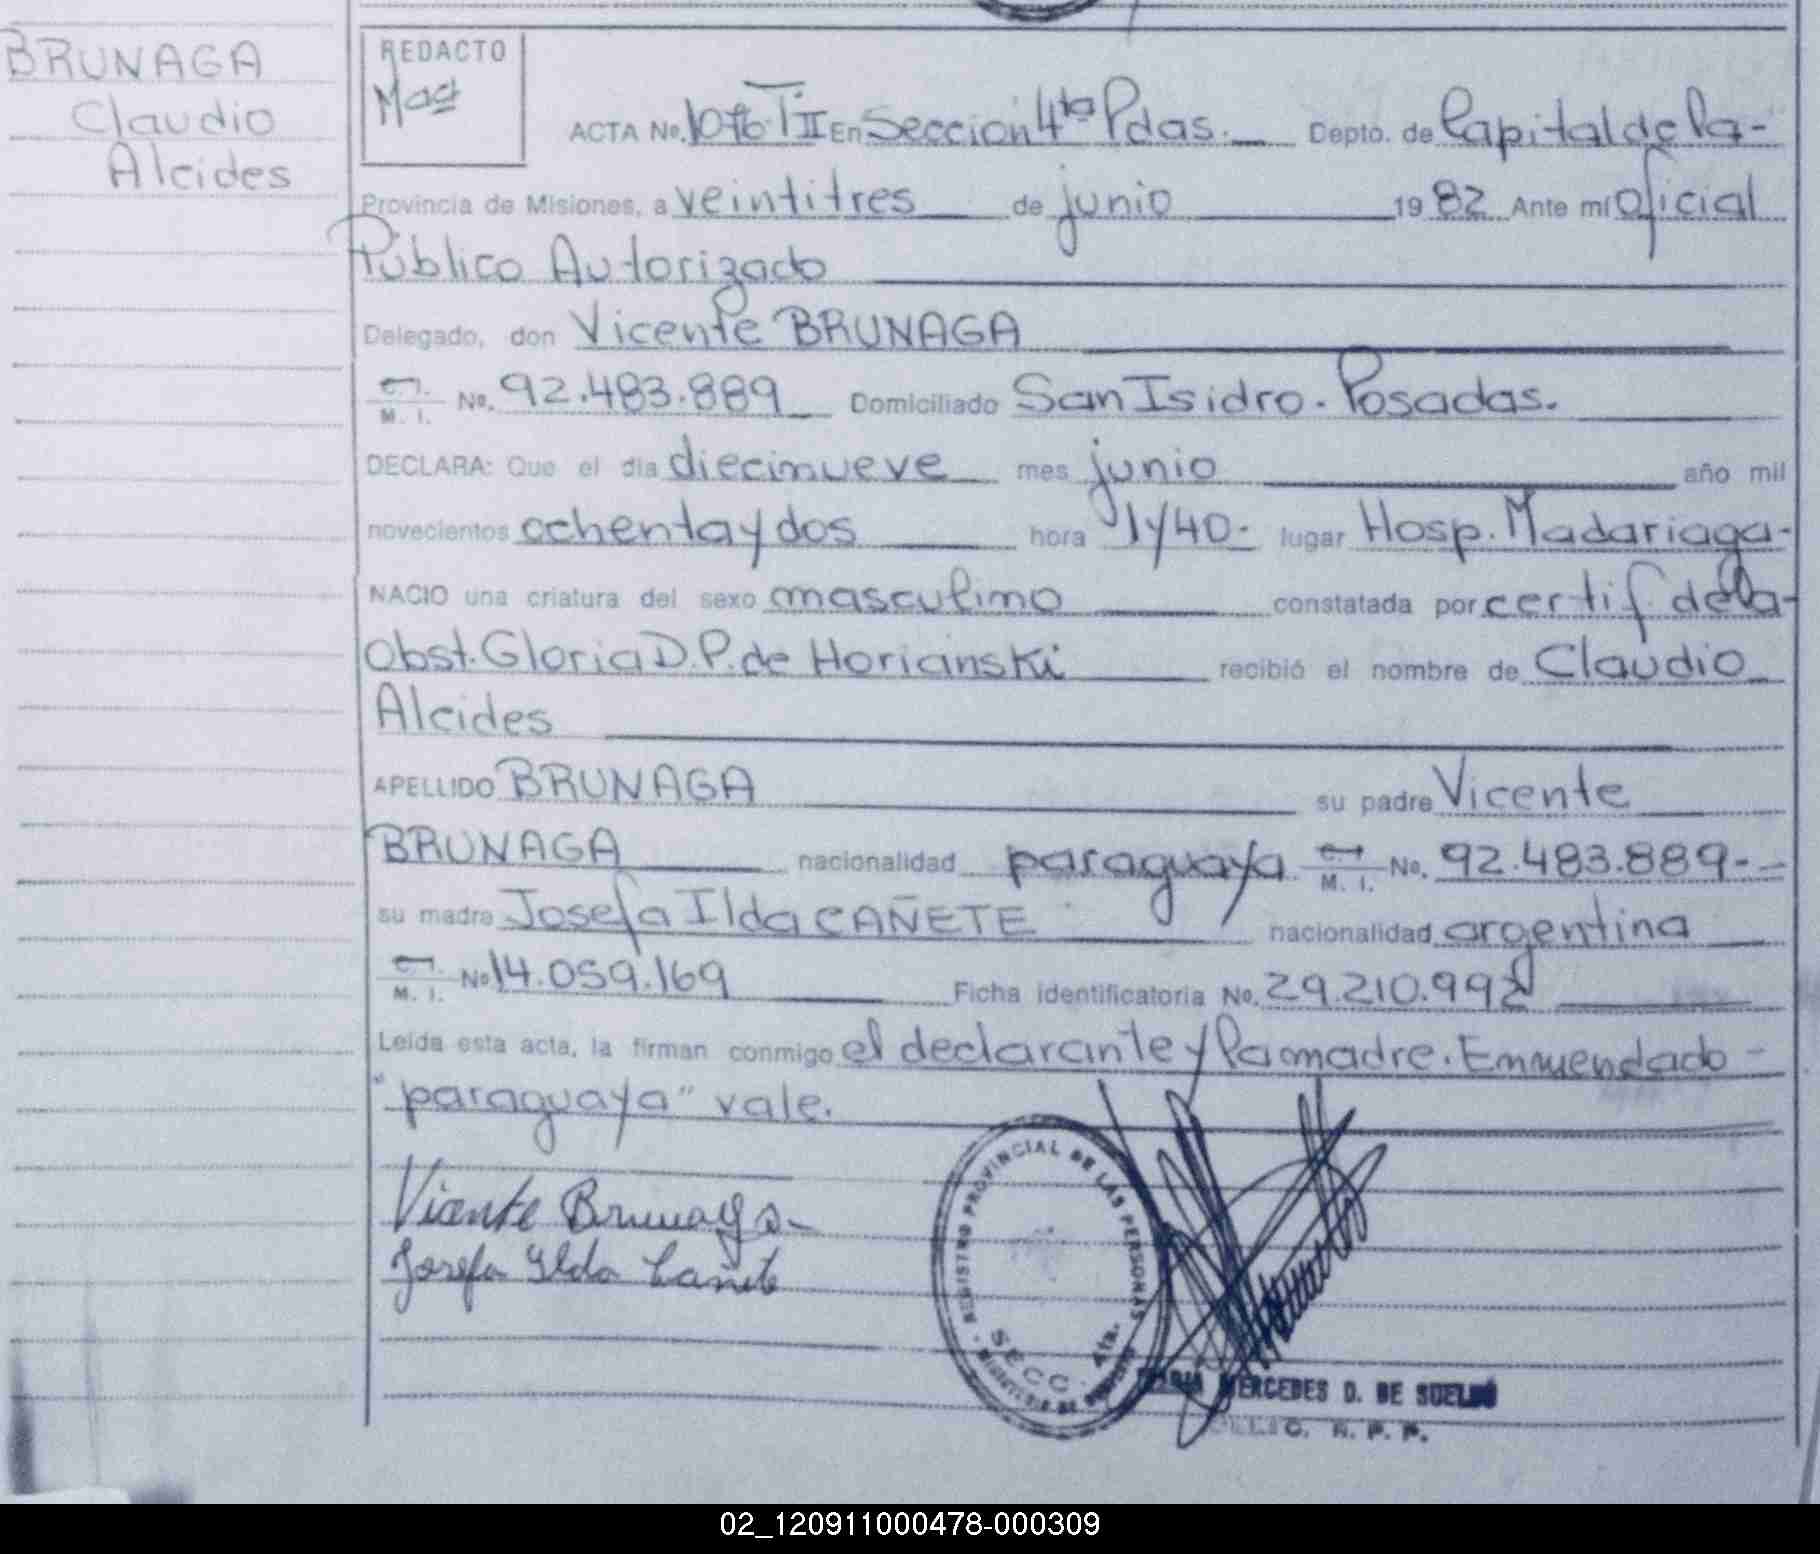 BRUNAGA
Claudio
Alcides
REDACTO
ACTA No. 1076 T II En Sección 4ta Pdas. Depto. de Capital de la-
Provincia de Misiones, a veintitres de junio 1982 Ante mí Oficial
Público Autorizado
Delegado, don Vicente BRUNAGA
M. I. No. 92.483.889 Domiciliado San Isidro. Posadas.
DECLARA: Que el día diecinueve mes junio año mil
novecientos ochenta y dos hora 1y40- lugar Hosp. Madariaga-
NACIO una criatura del sexo masculino constatada por certif. de la-
Obst. Gloria D.P. de Horianski recibió el nombre de Claudio
Alcides
APELLIDO BRUNAGA su padre Vicente
BRUNAGA nacionalidad paraguaya M. I. No. 92.483.889--
su madre Josefa Ilda CAÑETE nacionalidad argentina
M. I. No. 14.059.169 Ficha identificatoria No. 29.210.992
Leída esta acta, la firman conmigo el declarante y la madre. Enmendado-
"paraguaya" vale.
Vicente Brunaga
Josefa Ilda Cañete
REGISTRO PROVINCIAL DE LAS PERSONAS
SECC. 4ta.
MERCEDES D. DE
R. P. P.
02_120911000478-000309